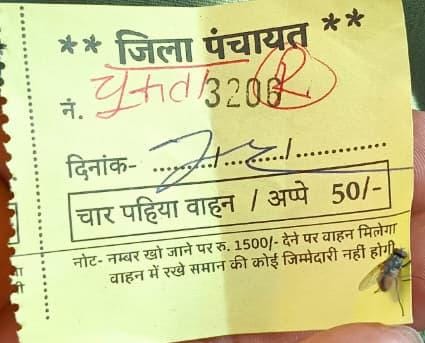 ** जिला पंचायत **
चुकता R
नं. 3206
दिनांक- ........./........./.............
चार पहिया वाहन / अप्पे 50/-
नोट- नम्बर खो जाने पर रु. 1500/- देने पर वाहन मिलेगा
वाहन में रखे समान की कोई जिम्मेदारी नहीं होगी